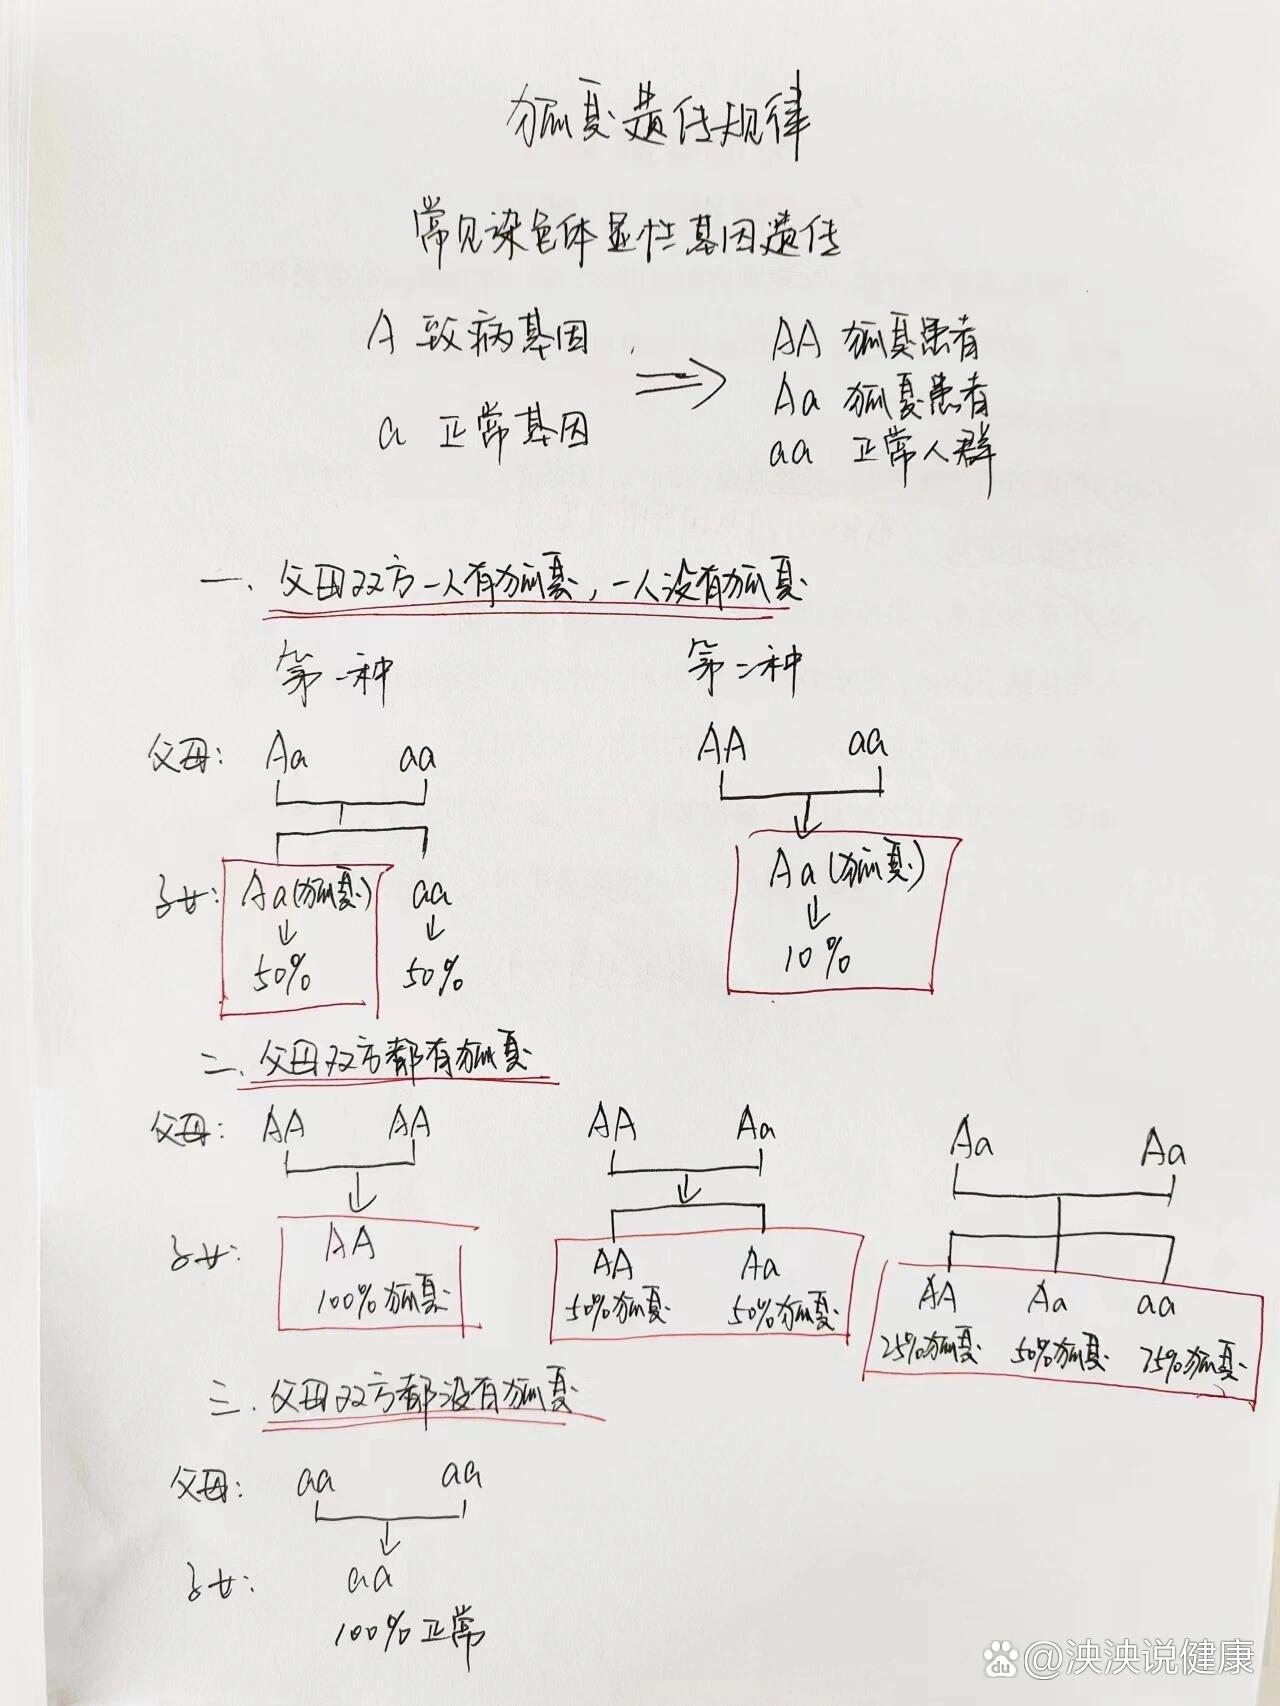 狐臭遗传规律
常见染色体显性基因遗传
A 致病基因
a 正常基因
AA 狐臭患者
Aa 狐臭患者
aa 正常人群
一、父母双方一人有狐臭，一人没有狐臭
第一种 第二种
父母： Aa aa AA aa
子女： Aa(狐臭) aa Aa(狐臭)
50% 50% 10%
二、父母双方都有狐臭
父母： AA AA AA Aa Aa Aa
子女： AA AA Aa AA Aa aa
100%狐臭 50%狐臭 50%狐臭 25%狐臭 50%狐臭 75%狐臭
三、父母双方都没有狐臭
父母： aa aa
子女： aa
100%正常
du @泱泱说健康